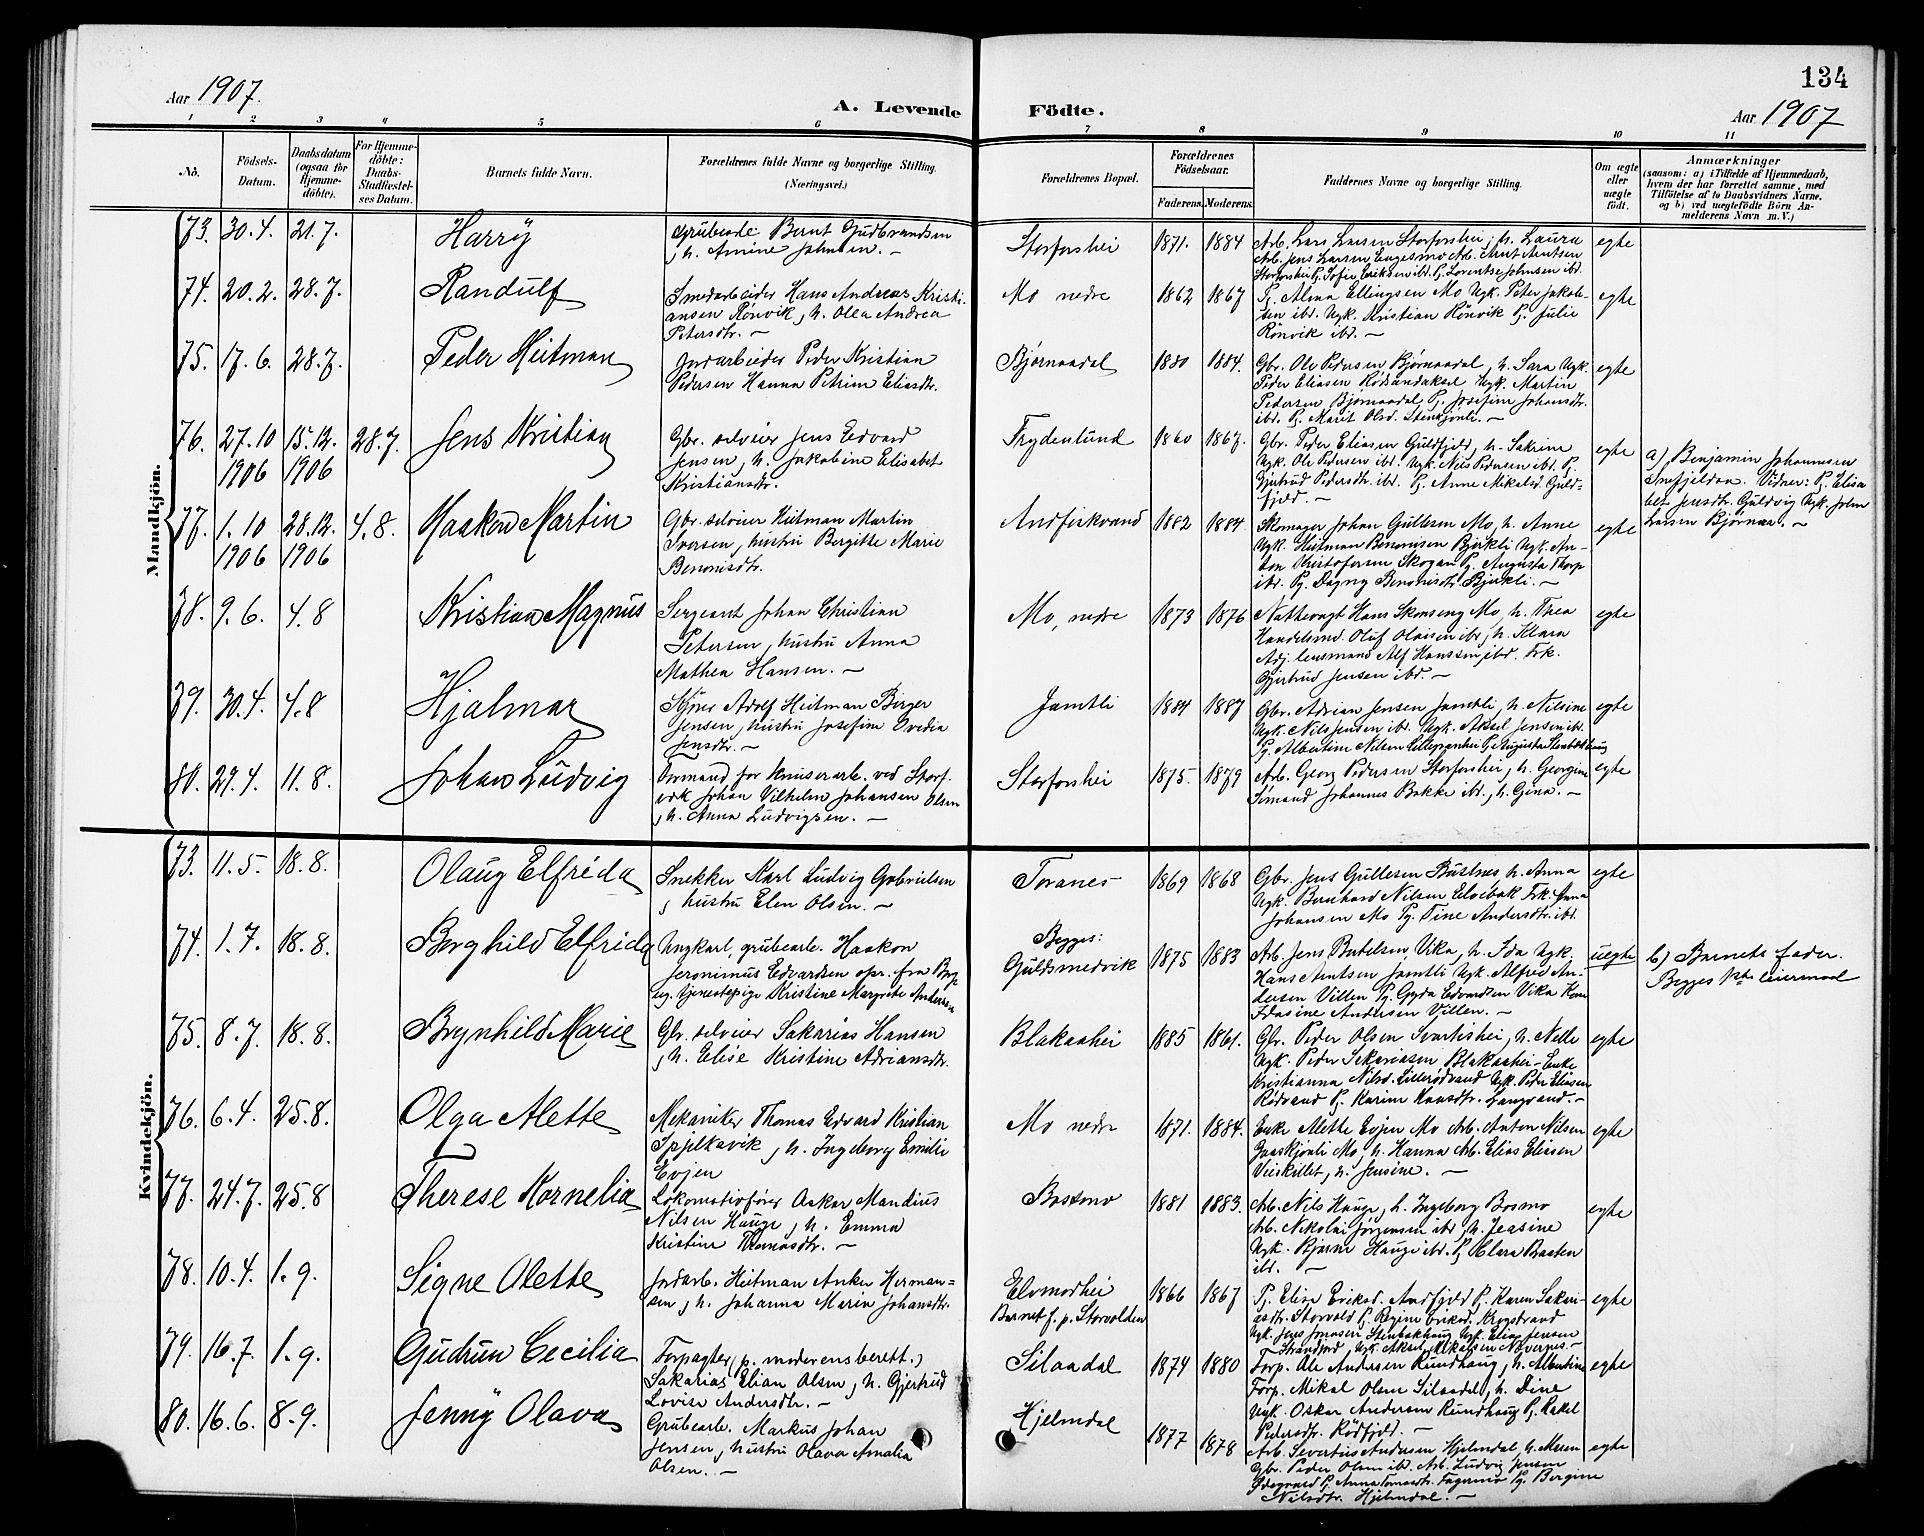 134
Aar 1907.
A. Levende Födte.
Aar 1907
1 2 3 4 5 6 7 8 9 10 11
No.
Födsels-Datum.
Daabsdatum (ogsaa for Hjemme-döbte).
For Hjemme-döbte: Daabs-Stadfæstel-ses Datum.
Barnets fulde Navn.
Forældrenes fulde Navne og borgerlige Stilling.
(Næringsvei.)
Forældrenes Bopæl.
Forældrenes Födselsaar.
Faderens. Moderens.
Faddernes Navne og borgerlige Stilling.
Om ægte eller uægte födt.
Anmærkninger
(saasom: a) i Tilfælde af Hjemmedaab,
hvem der har forrettet samme, med
Tilföielse af to Daabsvidners Navne,
og b) ved uægtefödte Börn An-
melderens Navn m. V.)
Mandkjön.
73. 30.4. 21.7. Harry
Grubearb. Bernt Gudbrandsen
, h. Amine Johnsen. —
Storforshei 1871. 1884
Arb. Lars Larsen Storforshei, h. Laura
Arb. Jens Larsen Engesmo Arb. Arnt Arntsen
Storforshei Pj. Sofie Eriksen ibd. Pj. Lorentse Johnsen ibd.
egte
74. 20.2. 28.7. Randulf
Smedarbeider Hans Andreas Kristi-
ansen Rönvik, h. Olea Andrea
Petersdtr. —
Mo nedre 1862 1867
Pj. Alma Ellingsen Mo Ugk. Peter Jakob-
sen ibd. Ugk. Kristian Rönvik Pj. Julie
Rönvik ibd. —
egte
75. 17.6. 28.7. Peder Heitman
Jordarbeider Peder Kristian
Pedersen Hanna Petrine Eliasdtr.
Bjørnaadal 1880 1884.
Gbr. Ole Pedersen Bjørnaadal, h. Sara Ugk.
Peder Eliasen Rödsandaksel Ugk. Martin
Pedersen Bjørnaadal Pj. Josefine Johansdtr.
ibd. Pj. Marit Olsd. Stenkjønli. —
egte
76. 27.10 1906 15.12. 1906 28.7 Jens Kristian
Gbr. selveier Jens Edvard
Jensen, h. Jakobine Elisabet
Kristiansdtr.
Frydenlund 1860 1867.
Gbr. Peder Eliasen Guldfjeld, h. Sakrine
Ugk. Ole Pedersen ibd. Ugk. Nils Pedersen ibd. Pj.
Gjertrud Pedersdtr. ibd. Pj. Anne Mikalsd. Guld-
fjeld. —
egte
a) Benjamin Johannesen
Snefjeldaa. Vidner: Pj. Elisa
bet Jensdtr. Guldvig Ugk. John
Larsen Bjørnaa. —
77. 1.10 1906 28.12. 1906 4.8. Haakon Martin
Gbr. selveier Heitman Martin
Iversen, hustru Bergitte Marie
Benonisdtr.
Andfiskvand 1882 1884
Skomager Johan Gullesen Mo, h. Anne
Ugk. Heitman Benonisen Bjerkli Ugk. An-
ton Kristofersen Skogan Pj. Augusta Thorp
ibd. Pj. Dagny Benonisdtr. Bjerkli. —
egte
78. 9.6. 4.8 Kristian Magnus
Sergeant Johan Christian
Petersen, hustru Anna
Mathea Hansen. —
Mo, nedre 1873 1876
Nattevagt Hans Skonseng Mo, h. Thea
Handelsmd. Oluf Olaisen ibd., h. Klara
Adj. lensmand Alf Hanssen ibd. Frk.
Gjertrud Jensen ibd. —
egte
79. 30.4. 4.8 Hjalmar
Adolf Heitman Birger
Jensen, hustru Josefine Ovedia
Jensdtr. —
Jamtli 1884 1887
Gbr. Adrian Jensen Jamtli, h. Nilsine
Ugk. Nils Jensen ibd. Ugk. Aksel Jensen ibd.
Pj. Albertine Nilsen Pj. Augusta
egte
80. 29.4. 11.8. Johan Ludvig
Formand for knuserarb. ved Storf.
verk Johan Vilhelm Johansen Olsen
, h. Anna Ludvigsen. —
Storforshei 1875. 1879
Arb. Georg Pedersen Storforshei, h. Georgine
Sömand Johannes Bakke ibd., h. Gina. —
egte
Kvindekjön.
73. 11.5. 18.8. Olaug Elfrida
Snekker Karl Ludvig Gabrielsen
, hustru Elen Olsen. —
Toranes 1869 1868
Gbr. Jens Gullesen Bustnes h. Anna
Ugk. Bernhard Nilsen Elvebak Frk. Anna
Johansen Mo Pj. Tine Andersdtr. ibd.
egte
74. 1.7. 18.8. Borghild Elfrida
Ungkarl, grubearb. Haakon
Jeronimus Edvardsen opr. fra
og tjenestepige Kristine Margrete Andersen
Begges:
Guldsmedvik 1875 1883
Arb. Jens Bertelsen, Vika, h. Ida Ugk.
Hans Arntsen Jamtli Ugk. Alfred An-
dersen Villen Pj. Gyda Edvardsen Vika Kone
Edasine Andersen Villen. —
uegte
b) Barnets fader.
Begges 1ste leiermaal
75. 8.7. 18.8. Brynhild Marie
Gbr. selveier Sakarias Hansen
, h. Elise Kristine Adriansdtr.
Blakaahei 1885 1861.
Gbr. Peder Olsen Svartishei, h. Nelle
Ugk. Peder Sakariasen Blakaahei Enke
Kristianna Nilsd. Lillerödvand Ugk. Peder Eliasen
Rödvand Pj. Karine Hansdtr. Langvand. —
egte
76. 6.4. 25.8. Olga Alette
Mekaniker Thomas Edvard Kristian
Spjelkavik, h. Ingeborg Emilie
Evjen
Mo nedre 1871. 1884.
Enke Alette Evjen Mo Arb. Anton Nilsen
Gruskjønli Mo, h. Hanna Arb. Elias Eliasen
Veiskillet, h. Jensine. —
egte
77. 24.7. 25.8 Therese Kornelia
Lokomotivförer Oskar Mandius
Nilsen Hauge, h. Emma
Kristine Thomasdtr. —
Bossmo 1881 1883.
Arb. Nils Hauge, h. Ingeborg Bosmo
Arb. Nikolai Jørgensen ibd, h. Jeasine
Ugk. Bjarne Hauge ibd. Pj. Clara Braaten
ibd. —
egte
78. 10.4. 1.9. Signe Olette
Jordarb. Heitman Anker Herman-
sen, h. Johanna Marie Johansdtr.
Elvmodhei
Barnet f. p. Storvolden 1866 1867
Pj. Elise Eriksd. Andfjeld Pj. Karen Sakari-
asdtr. Storvold Pj. Regine Eriksd. Krogstrand
Ugk. Jens Jonasen Stenbækhaug Ugk. Elias Jensen
Strandjord, Ugk. Aksel Mikalsen Nævernes. —
egte
79. 16.7. 1.9. Gudrun Cecilia
Forpagter (p. moderens berett.)
Sakarias Elian Olsen, h. Gjertrud
Lovise Andersdtr. —
Silaadal 1874 1880
Forp. Ole Andersen Rundhaug, h. Albertine
Forp. Mikal Olsen Silaadal, h. Dine
Ugk. Oskar Andersen Rundhaug Pj. Rakel
Pedersdtr. Rödfjeld. —
egte
80. 16.6. 8.9. Jenny Olava
Grubearb. Markus Johan
Jensen, hustru Olava Amalia
Olsen. —
Hjelmdal 1877 1878
Arb. Severtius Andersen Hjelmdal h. Maren
Gbr. Peder Olsen ibd. Arb. Ludvig Jensen
Ødegaard Pj. Anna Tomasdtr. Fagermo Pj. Bergine
Nilsdtr. Hjelmdal. —
egte